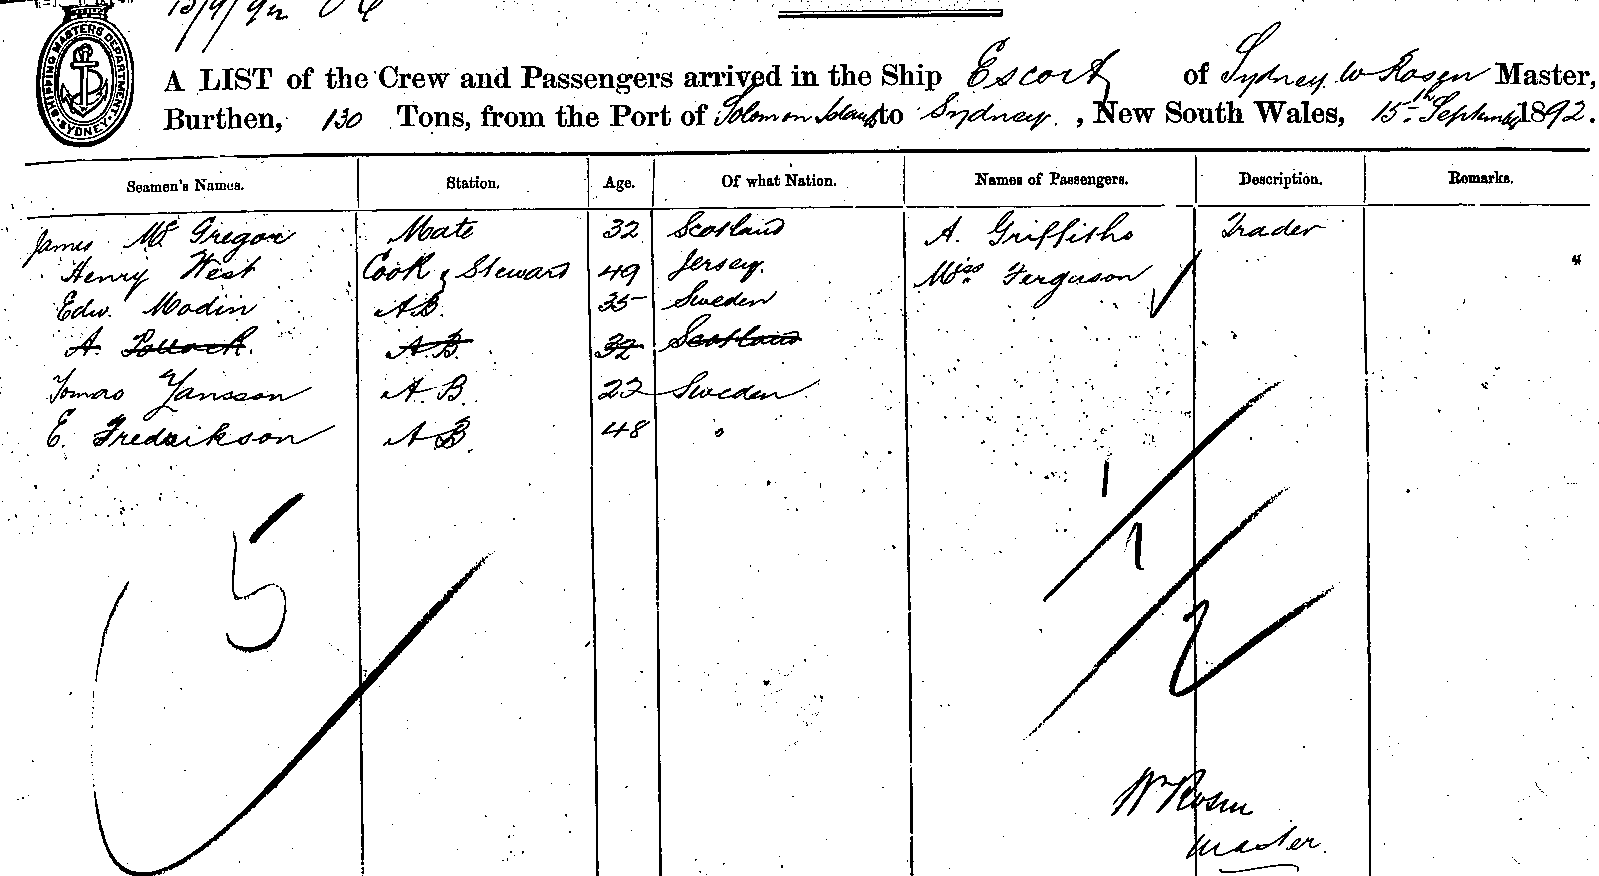 15/9/92
SHIPPING MASTERS DEPARTMENT. SYDNEY.
A LIST of the Crew and Passengers arrived in the Ship Escort of Sydney, W Rosen Master,
Burthen, 130 Tons, from the Port of Solomon Islands to Sydney, New South Wales, 15th September 1892.
Seamen's Names. Station. Age. Of what Nation. Names of Passengers. Description. Remarks.
James Mc Gregor Mate 32 Scotland A. Griffiths Trader
Henry West Cook & Steward 49 Jersey. Miss Ferguson
Edw. Modin AB. 35 Sweden
A. Pollock. AB 32 Scotland
Tomas Jansson A.B. 22 Sweden
E. Fredrikson AB. 48 "
1
5 1
2
Wm Rosen
Master.